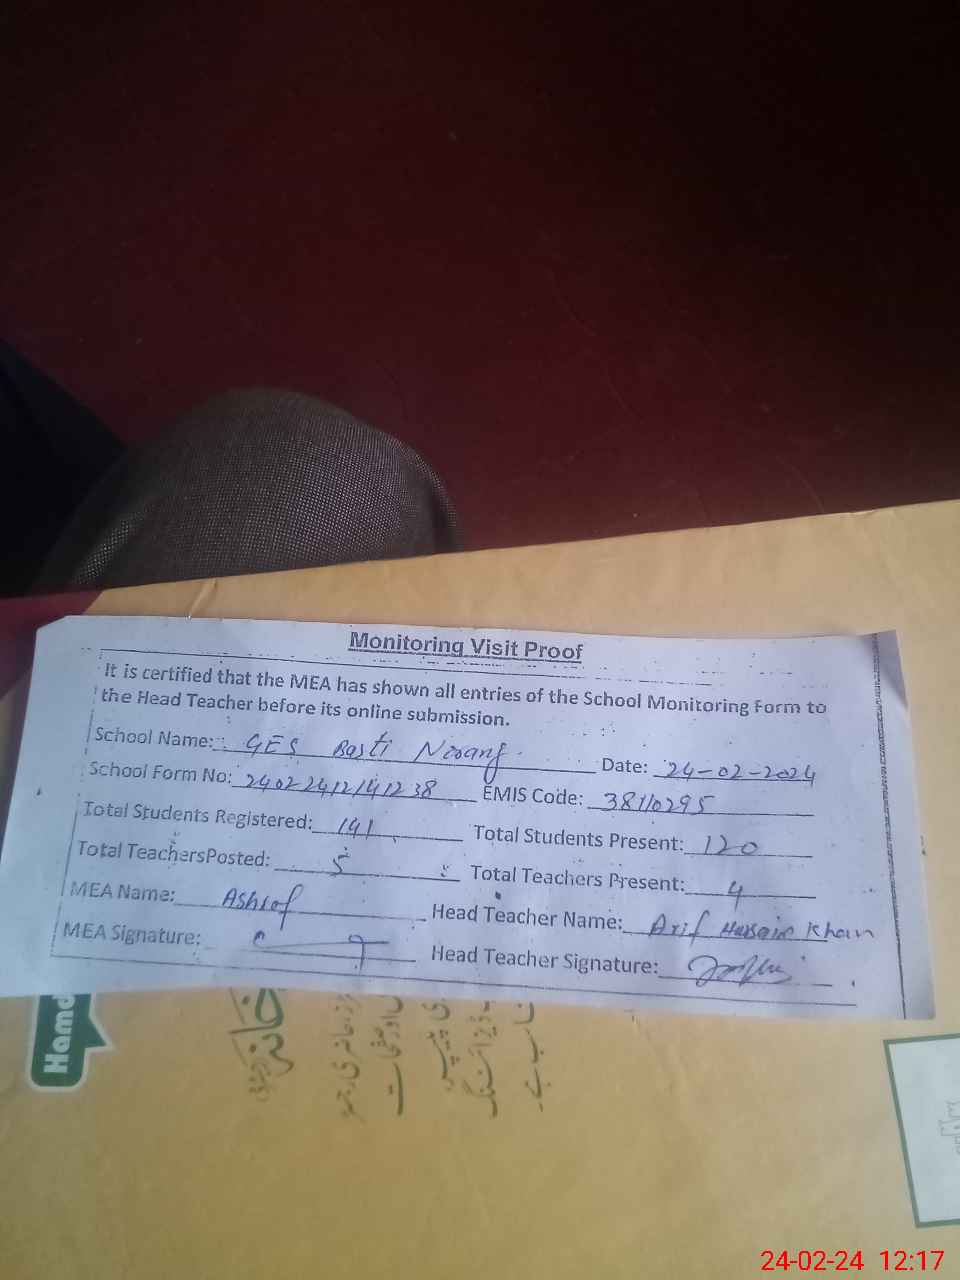 Monitoring Visit Proof
It is certified that the MEA has shown all entries of the School Monitoring Form to
the Head Teacher before its online submission.
School Name: GES Basti Date: 24-02-2024
School Form No: 24022412141238 EMIS Code: 38110295
Total Students Registered: 141 Total Students Present: 120
Total TeachersPosted: 5 Total Teachers Present: 4
MEA Name: Ashraf Head Teacher Name: Arif Hussain Khan
MEA Signature: Head Teacher Signature:
Hamd
24-02-24 12:17